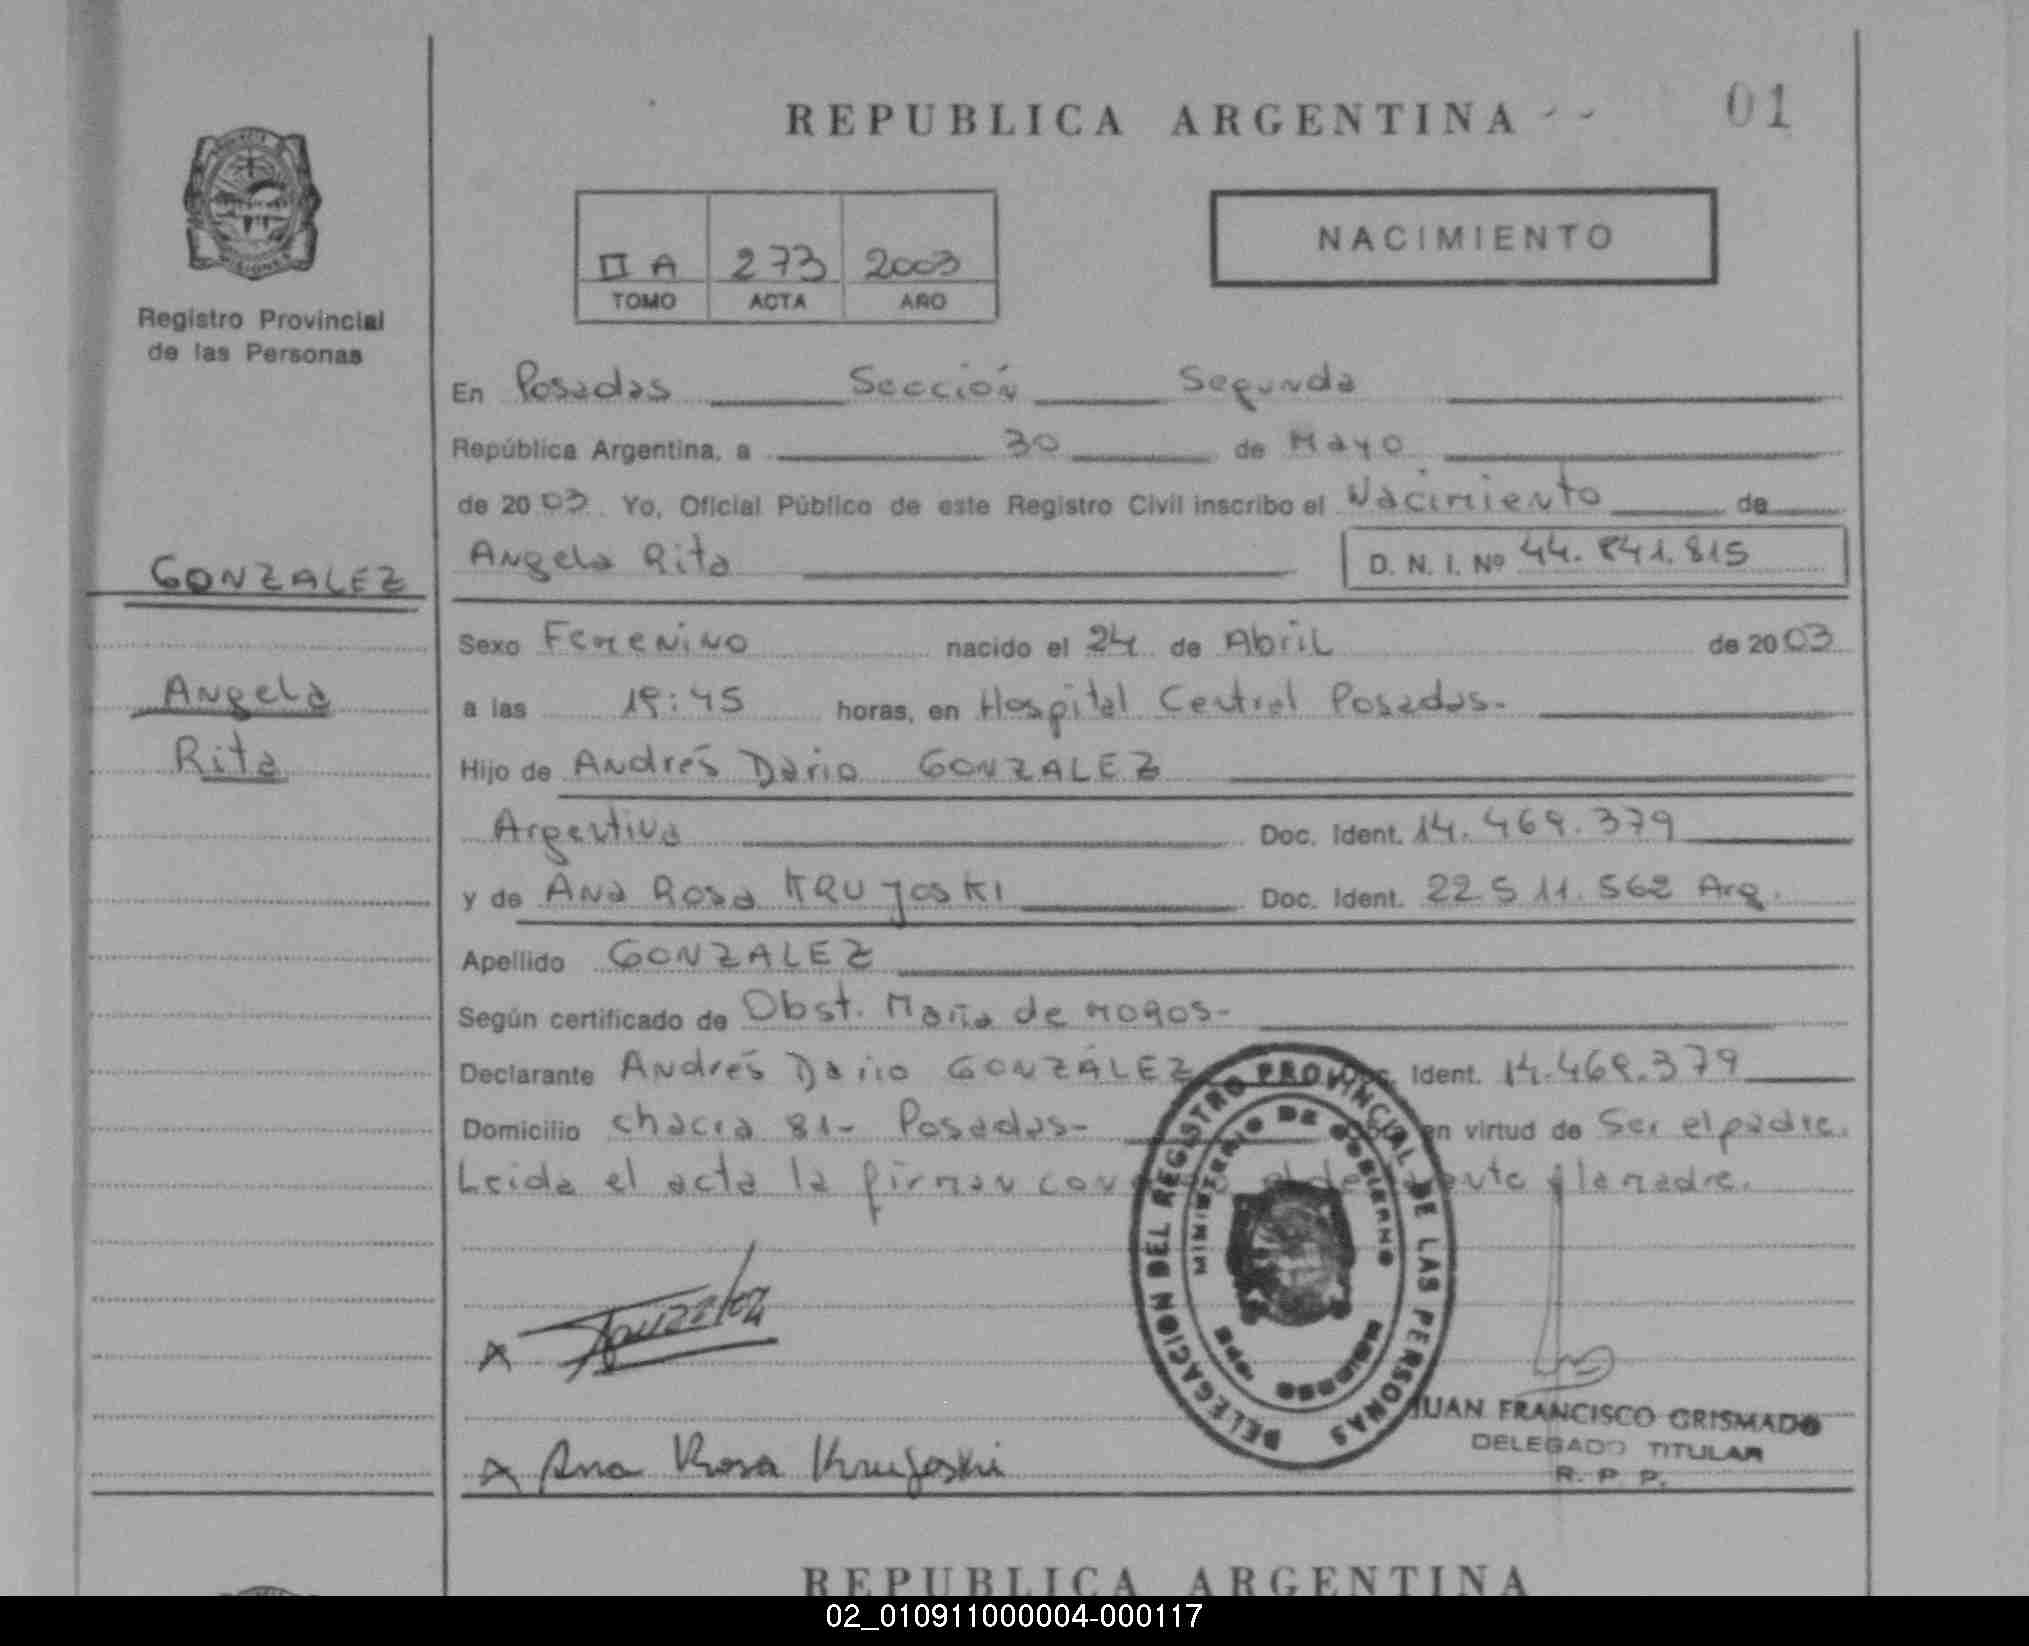 REPUBLICA ARGENTINA
01
NACIMIENTO
II A 273 2003
TOMO ACTA AÑO
Registro Provincial
de las Personas
En Posadas Sección Segunda
República Argentina, a 30 de Mayo
de 2003 Yo, Oficial Público de este Registro Civil inscribo el Nacimiento de
Angela Rita D. N. I. Nº 44.841.815
GONZALEZ
Angela
Rita
Sexo Femenino nacido el 24 de Abril de 2003
a las 19:45 horas, en Hospital Central Posadas.
Hijo de Andrés Dario GONZALEZ
Argentina Doc. Ident. 14.469.379
y de Ana Rosa KRUJOSKI Doc. Ident. 22.511.562 Arg.
Apellido GONZALEZ
Según certificado de Obst. María de
Declarante Andrés Dario GONZÁLEZ Doc. Ident. 14.469.379
Domicilio chacra 81- Posadas- en virtud de Ser el padre.
Leida el acta la firman la madre.
DELEGACION DEL REGISTRO PROVINCIAL DE LAS PERSONAS
MINISTERIO DE GOBIERNO
Gonzalez
Ana Rosa Krujoski
JUAN FRANCISCO GRISMADO
DELEGADO TITULAR
R. P. P.
REPUBLICA ARGENTINA
02_010911000004-000117